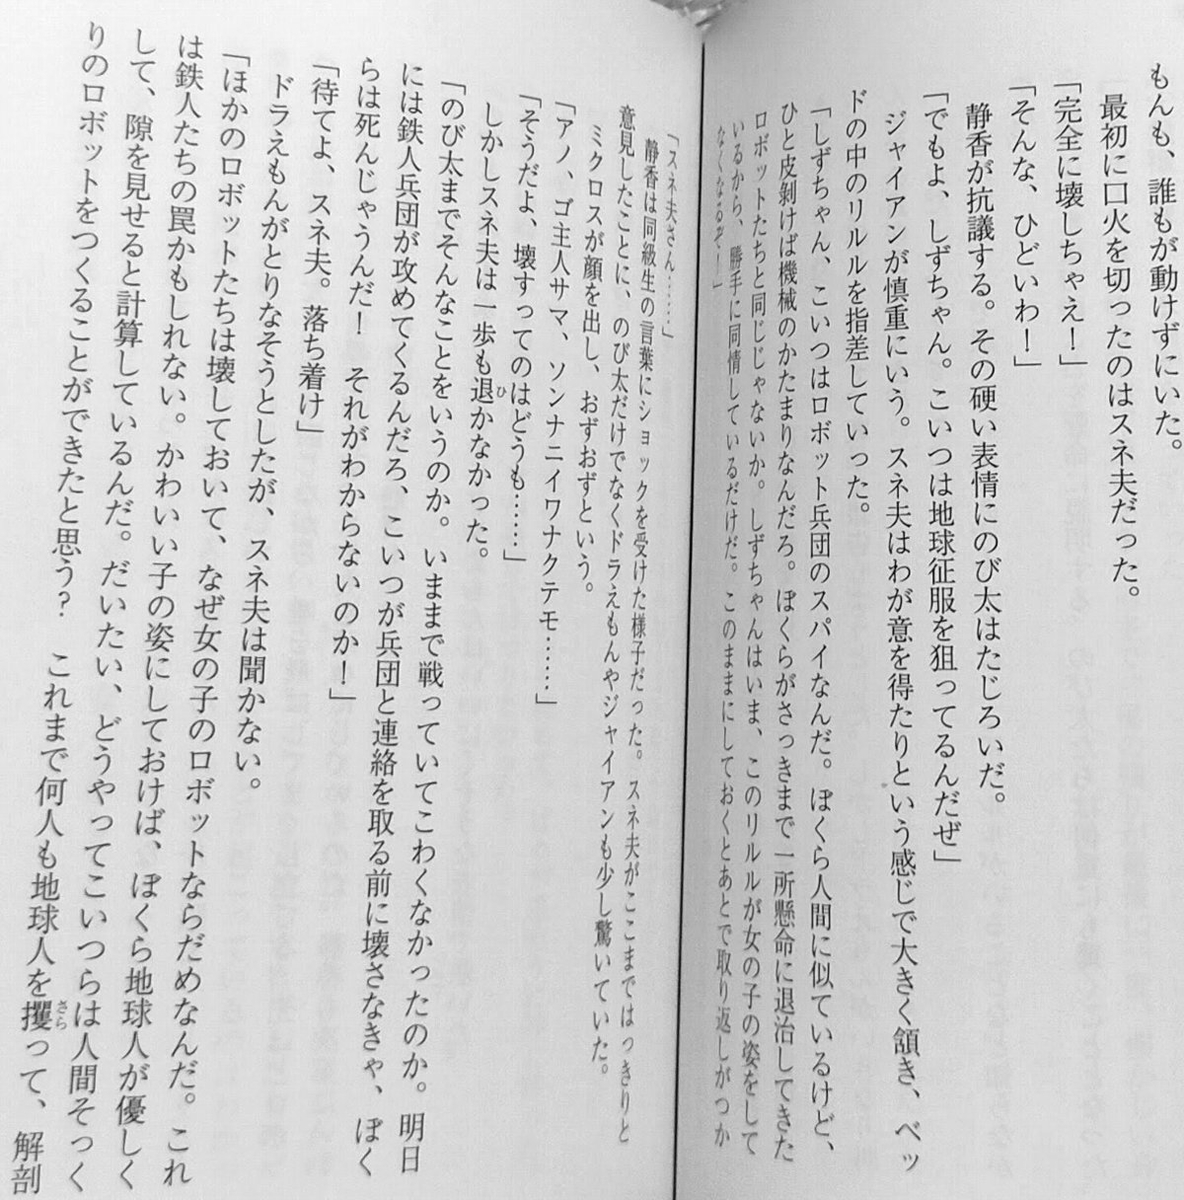 もんも、誰もが動けずにいた。
最初に口火を切ったのはスネ夫だった。
「完全に壊しちゃえ！」
「そんな、ひどいわ！」
静香が抗議する。その硬い表情にのび太はたじろいだ。
「でもよ、しずちゃん。こいつは地球征服を狙ってるんだぜ」
ジャイアンが慎重にいう。スネ夫はわが意を得たりという感じで大きく頷き、ベッ
ドの中のリルルを指差していった。
「しずちゃん、こいつはロボット兵団のスパイなんだ。ぼくら人間に似ているけど、
ひと皮剝けば機械のかたまりなんだろ。ぼくらがさっきまで一所懸命に退治してきた
ロボットたちと同じじゃないか。しずちゃんはいま、このリルルが女の子の姿をして
いるから、勝手に同情しているだけだ。このままにしておくとあとで取り返しがつか
なくなるぞ！」
「スネ夫さん……」
静香は同級生の言葉にショックを受けた様子だった。スネ夫がここまではっきりと
意見したことに、のび太だけでなくドラえもんやジャイアンも少し驚いていた。
ミクロスが顔を出し、おずおずという。
「アノ、ゴ主人サマ、ソンナニイワナクテモ……」
「そうだよ、壊すってのはどうも……」
しかしスネ夫は一歩も退かなかった。
「のび太までそんなことをいうのか。いままで戦っていてこわくなかったのか。明日
には鉄人兵団が攻めてくるんだろ、こいつが兵団と連絡を取る前に壊さなきゃ、ぼく
らは死んじゃうんだ！　それがわからないのか！」
「待てよ、スネ夫。落ち着け」
ドラえもんがとりなそうとしたが、スネ夫は聞かない。
「ほかのロボットたちは壊しておいて、なぜ女の子のロボットならだめなんだ。これ
は鉄人たちの罠かもしれない。かわいい子の姿にしておけば、ぼくら地球人が優しく
して、隙を見せると計算しているんだ。だいたい、どうやってこいつらは人間そっく
りのロボットをつくることができたと思う？　これまで何人も地球人を攫って、解剖